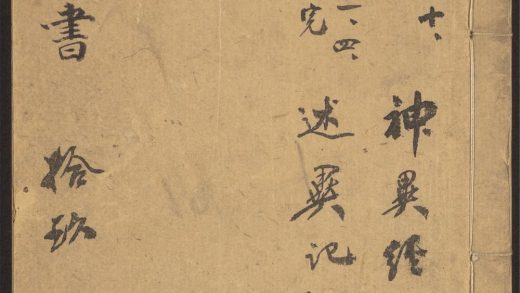 十、神異經
一、四、完 述異記
書 拾玖